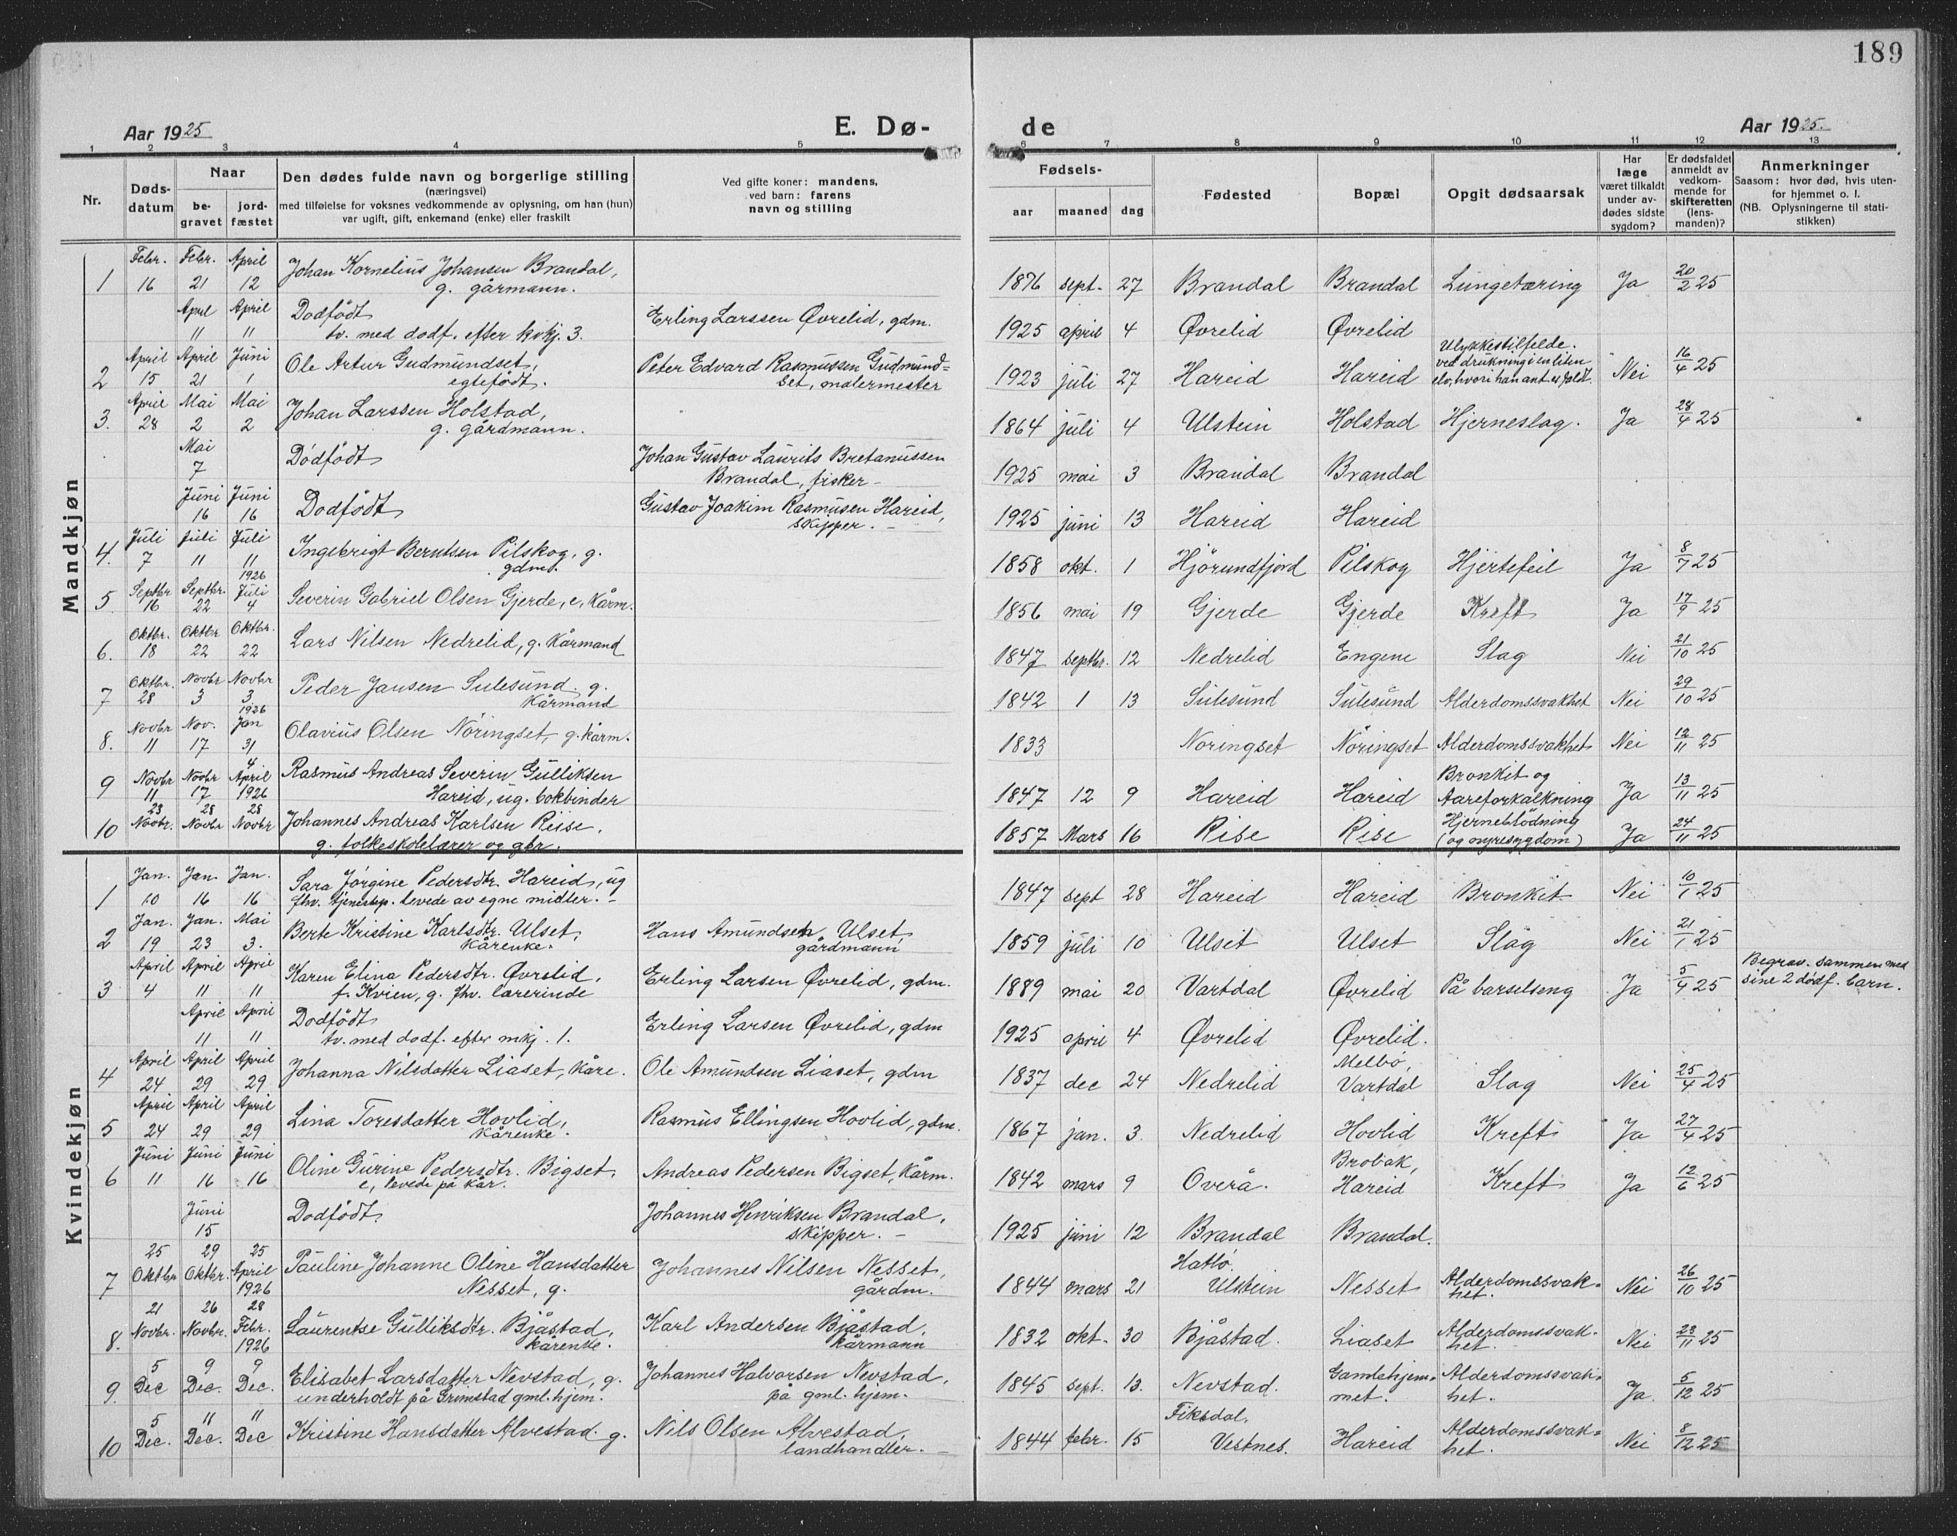 189
Aar 1925
E. Dø-
de
Aar 1925.
1 2 3 4 5 6 7 8 9 10 11 12 13
Nr.
Døds-
datum
Naar
be-
gravet
jord-
fæstet
Den dødes fulde navn og borgerlige stilling
(næringsvei)
med tilføielse for voksnes vedkommende av oplysning, om han (hun)
var ugift, gift, enkemand (enke) eller fraskilt
Ved gifte koner: mandens,
ved barn: farens
navn og stilling
Fødsels-
aar maaned dag
Fødested
Bopæl
Opgit dødsaarsak
Har
læge
været tilkaldt
under av-
dødes sidste
sygdom?
Er dødsfaldet
anmeldt av
vedkom-
mende for
skifteretten
(lens-
manden)?
Anmerkninger
Saasom: hvor død, hvis uten-
for hjemmet o. l.
(NB. Oplysningerne til stati-
stikken)
Mandkjøn
1 Febr. 16 Febr. 21 April 12 Johan Kornelius Johansen Brandal,
g. gårmann. 1876 sept. 27 Brandal Brandal Lungetæring Ja 20/2 25
April 11 April 11 Dødfødt
tv. med dødf. efter kvkj. 3. Erling Larssen Øvrelid, gdm. 1925 april 4 Øvrelid Øvrelid
2 April 15 April 21 Juni 1 Ole Artur Gudmundset,
egtefødt. Peter Edvard Rasmussen Gudmund=
set, malermester 1923 juli 27 Hareid Hareid Ulykkestilfelde.
ved drukning i en liten
elv, hvori han ant. er faldt. Nei 16/4 25
3. April 28 Mai 2 Mai 2 Johan Larssen Holstad,
g. gårdmann. 1864 juli 4 Ulstein Holstad Hjerneslag. Ja 28/4 25
Mai 7 Dødfødt Johan Gustav Laurits Bretanussen
Brandal, fisker 1925 mai 3 Brandal Brandal
Juni 16 Juni 16 Dødfødt Gustav Joakim Rasmusen Hareid,
skipper. 1925 juni 13 Hareid Hareid
4. Juli 7 Juli 11 Juli 11 Ingebrigt Berntsen Pilskog, g.
gdm. 1858 okt. 1 Hjørundfjord Pilskog Hjertefeil Ja 8/7 25
5. Septbr 16 Septbr. 22 1926 Juli 4 Severin Gabriel Olsen Gjerde, e, kårm. 1856 mai 19 Gjerde Gjerde Kreft Ja 17/9 25
6. Oktbr. 18 Oktbr 22 Oktbr. 22 Lars Nilsen Nedrelid, g. kårmand 1847 septbr. 12 Nedrelid Engene Slag Nei 21/10 25
7 Oktbr. 28 Novbr 3 Novbr 3 Peder Jansen Sulesund g.
kårmand 1842 1 13 Sulesund Sulesund Alderdomssvakhet Nei 29/10 25
8. Novbr 11 Nov. 17 1926 Jan 31 Olavius Olsen Nöringset, g. kårm. 1833 Noringset Nöringset Alderdomssvakhet Nei 12/11 25
9 Novbr 11 Novbr 17 4 April 1926 Rasmus Andreas Severin Gulliksen
Hareid, ug. bokbinder 1847 12 9 Hareid Hareid Bronkit og
Aareforkalkning Ja 13/11 25
10 23 Novbr. 28 Novbr 28 Novbr Johannes Andreas Karlsen Riise,
g. folkeskolelærer og gbr. 1857 Mars 16 Rise Rise Hjerneblödning
(og nyresygdom) Ja 24/11 25
Kvindekjøn
1 Jan. 10 Jan. 16 Jan. 16 Sara Jørgine Pedersdtr. Hareid, ug
fhv. tjenestep. Levede av egne midler. 1847 sept 28 Hareid Hareid Bronkit Nei 10/1 25
2 Jan. 19 Jan. 23 Mai 3. Berte Kristine Karlsdtr. Ulset,
kårenke. Hans Amundsen Ulset
gårdmann 1859 juli 10 Ulset Ulset Slag Nei 21/1 25
3 April 4 April 11 April 11 Karen Elina Pedersdtr. Øvrelid,
f. Kvien, g. fhv. lærerinde Erling Larsen Øvrelid, gdm. 1889 mai 20 Vartdal Øvrelid På barselseng Ja 5/4 25 Begrav. sammen med
sine 2 dødf. barn.
April 11 April 11 Dødfødt
tv. med dødf. efter mkj. 1. Erling Larsen Øvrelid, gdm 1925 april 4 Øvrelid Øvrelid.
4 April 24 April 29 April 29 Johanna Nilsdatter Liaset, kåre. Ole Amundsen Liaset, gdm 1837 dec 24 Nedrelid Melbø,
Vartdal Slag Nei 25/4 25
5 April 24 April 29 April 29 Lina Toresdatter Hovlid,
kårenke. Rasmus Ellingsen Hovlid, gdm. 1867 jan. 3. Nedrelid Hovlid Kreft Ja 27/4 25
6 Juni 11 Juni 16 Juni 16 Oline Gurine Pedersdtr. Bigset,
e, levede på kår. Andreas Pedersen Bigset, kårm. 1842 mars 9 Overå. Brobak,
Hareid Kreft Ja 12/6 25
Juni 15 Dødfødt Johannes Henriksen Brandal,
skipper. 1925 juni 12 Brandal Brandal.
7 25 Oktbr 29 Oktbr. 25 April 1926 Pauline Johanne Oline Hansdatter
Nesset, g. Johannes Nilsen Nesset,
gårdm. 1844 mars 21 Hatlø.
Ulstein Nesset Alderdomssvak=
het. Nei 26/10 25
8. 21 Novbr. 26 Novbr. 28 Febr. 1926 Laurentse Gulliksdtr. Bjåstad,
kårenke. Karl Andersen Bjåstad,
kårmann 1832 okt. 30 Bjåstad. Liaset Alderdomssvak=
het. Nei 23/11 25
9. 5 Dec 9 Dec. 9 Dec. Elisabet Larsdatter Nevstad, g.
underholdt på Grimstad gml. hjem. Johannes Halvorsen Nevstad,
på gml. hjem. 1845 sept. 13. Nevstad. Gamlehjem-
met. Alderdomssvak=
het. Ja. 5/12 25
10 5 Dec. 11 Dec. 11 Dec Kristine Hansdatter Alvestad. g. Nils Olsen Alvestad,
landhandler. 1844 febr. 15 Fiksdal,
Vestnes. Hareid Alderdomssvak=
het. Nei 8/12 25